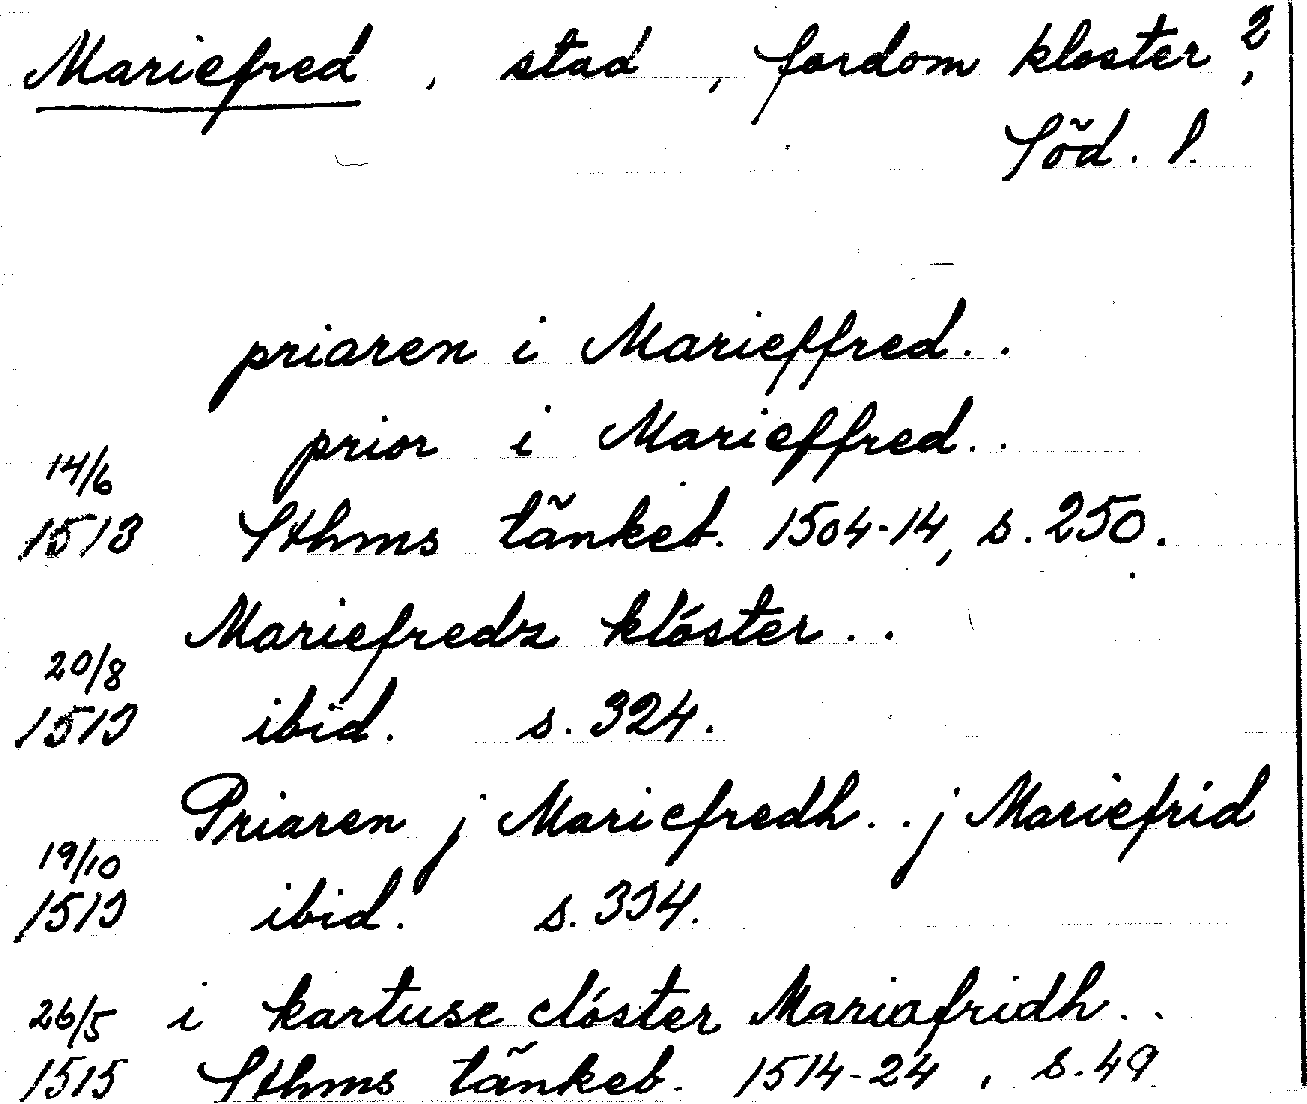 Mariefred, stad, fordom kloster, 2
Söd. l.
priaren i Marieffred. .
prior i Marieffred. .
14/6
1513 Sthms tänkeb. 1504-14, s. 250.
Mariefredz klóster. .
20/8
1513 ibid. s. 324.
Priaren j Mariefredh. . j Mariefrid
19/10
1513 ibid. s. 334.
26/5 i kartuse clóster Mariafridh. .
1515 Sthms tänkeb. 1514-24, s. 49